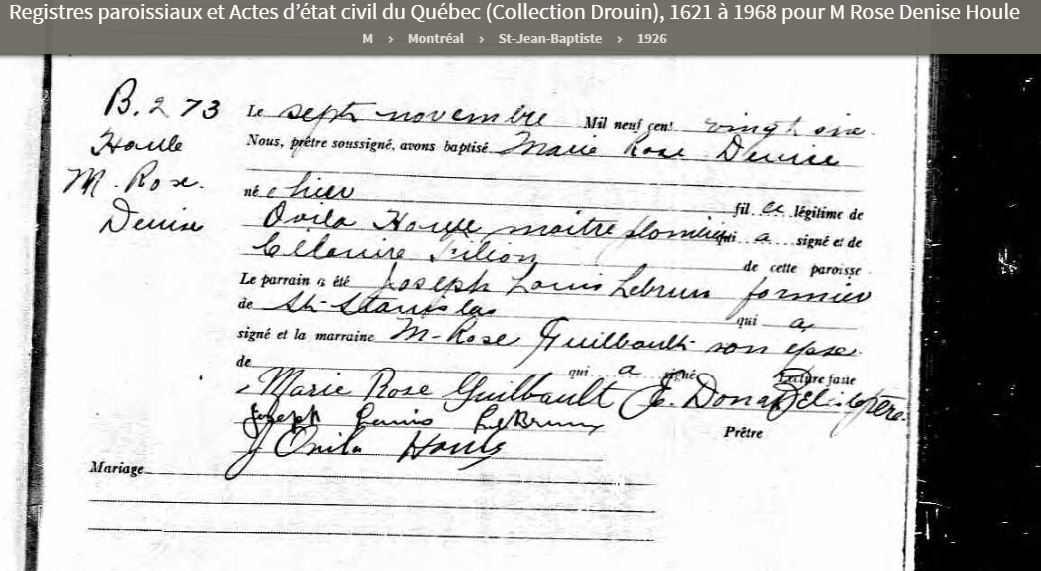 Registres paroissiaux et Actes d’état civil du Québec (Collection Drouin), 1621 à 1968 pour M Rose Denise Houle
M > Montréal > St-Jean-Baptiste > 1926
B. 273
Houle
M. Rose.
Denise
Le sept novembre Mil neuf cent vingt six
Nous, prêtre soussigné, avons baptisé Marie Rose Denise
né e hier fil le légitime de
Ovila Houle maître plombier qui a signé et de
Filion de cette paroisse
Le parrain a été Joseph Louis Lebrun
de St-Stanislas qui a
signé et la marraine M-Rose Guilbault son épse.
de qui a signé Lecture faite
Marie Rose Guilbault E. Donat ptre.
Joseph Louis LeBrun
J Ovila Houle
Prêtre
Mariage